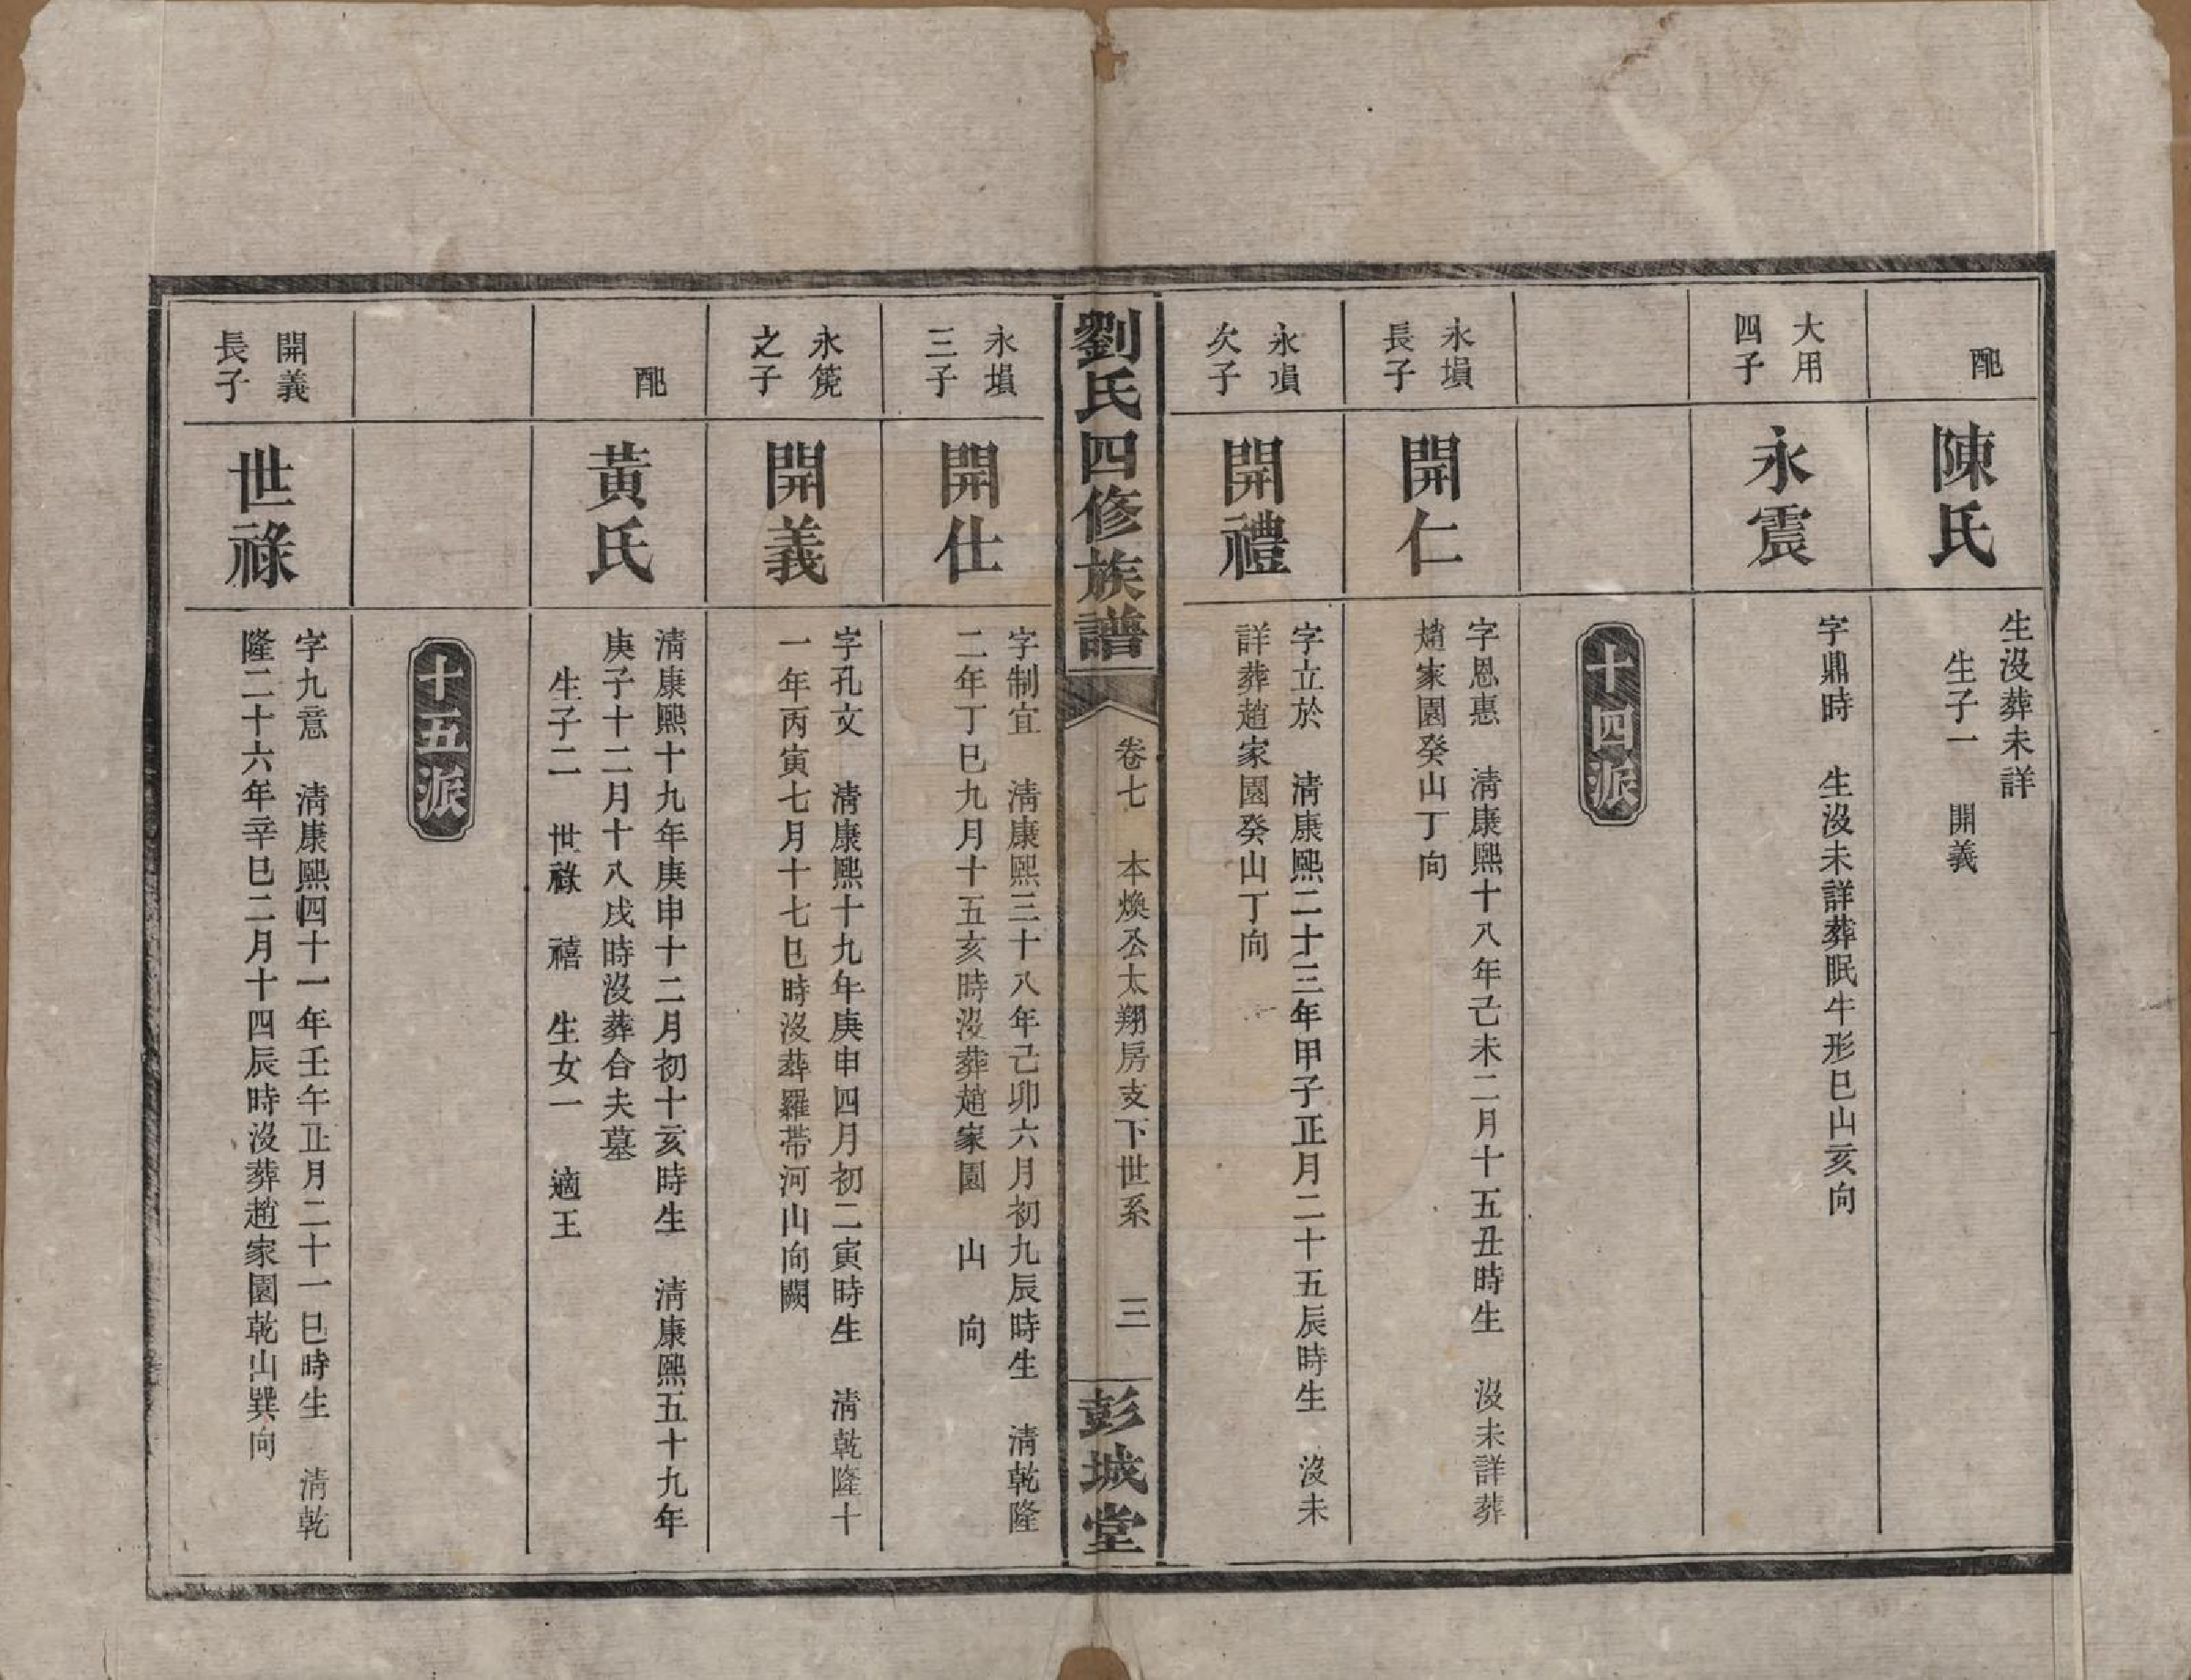 配
陳氏
生沒葬未詳
生子一　開義
大用
四子
永震
字鼎時　生沒未詳葬眠牛形巳山亥向
十四派
永塤
長子
開仁
字恩惠　清康熙十八年己未二月十五丑時生　沒未詳葬
趙家園癸山丁向
永塤
次子
開禮
字立於　清康熙二十三年甲子正月二十五辰時生　沒未
詳葬趙家園癸山丁向
劉氏四修族譜
卷七　本煥公太翔房支下世系　三
彭城堂
永塤
三子
開仕
字制宜　清康熙三十八年己卯六月初九辰時生　清乾隆
二年丁巳九月十五亥時沒葬趙家園　山　向
永箎
之子
開義
字孔文　清康熙十九年庚申四月初二寅時生　清乾隆十
一年丙寅七月十七巳時沒葬羅帶河山向闕
配
黃氏
清康熙十九年庚申十二月初十亥時生　清康熙五十九年
庚子十二月十八戌時沒葬合夫墓
生子二　世祿　禧　生女一　適王
十五派
開義
長子
世祿
字九意　清康熙四十一年壬午正月二十一巳時生　清乾
隆二十六年辛巳二月十四辰時沒葬趙家園乾山巽向